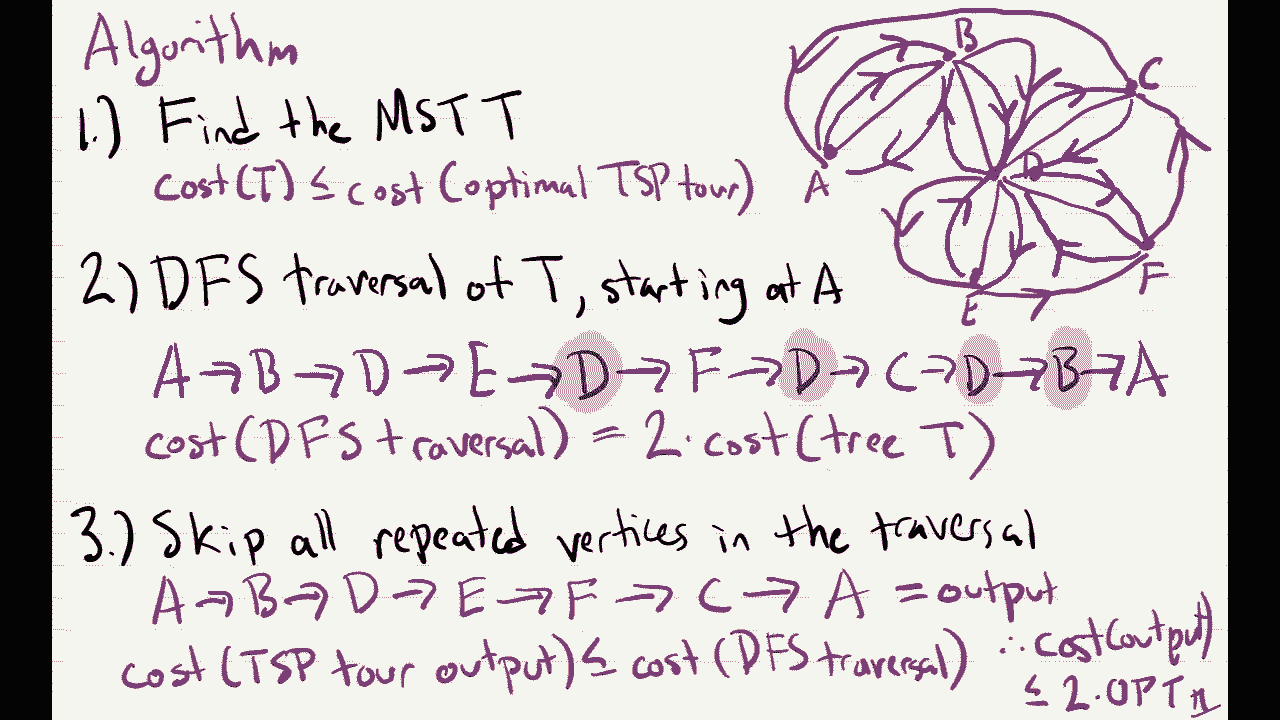 Algorithm
1.) Find the MST T
cost(T) ≤ cost (optimal TSP tour)
2) DFS traversal of T, starting at A
A → B → D → E → D → F → D → C → D → B → A
cost(DFS traversal) = 2·cost(tree T)
3.) Skip all repeated vertices in the traversal
A → B → D → E → F → C → A = output
cost(TSP tour output) ≤ cost (DFS traversal)
∴ cost(output)
≤ 2·OPT
B
C
D
A
F
E